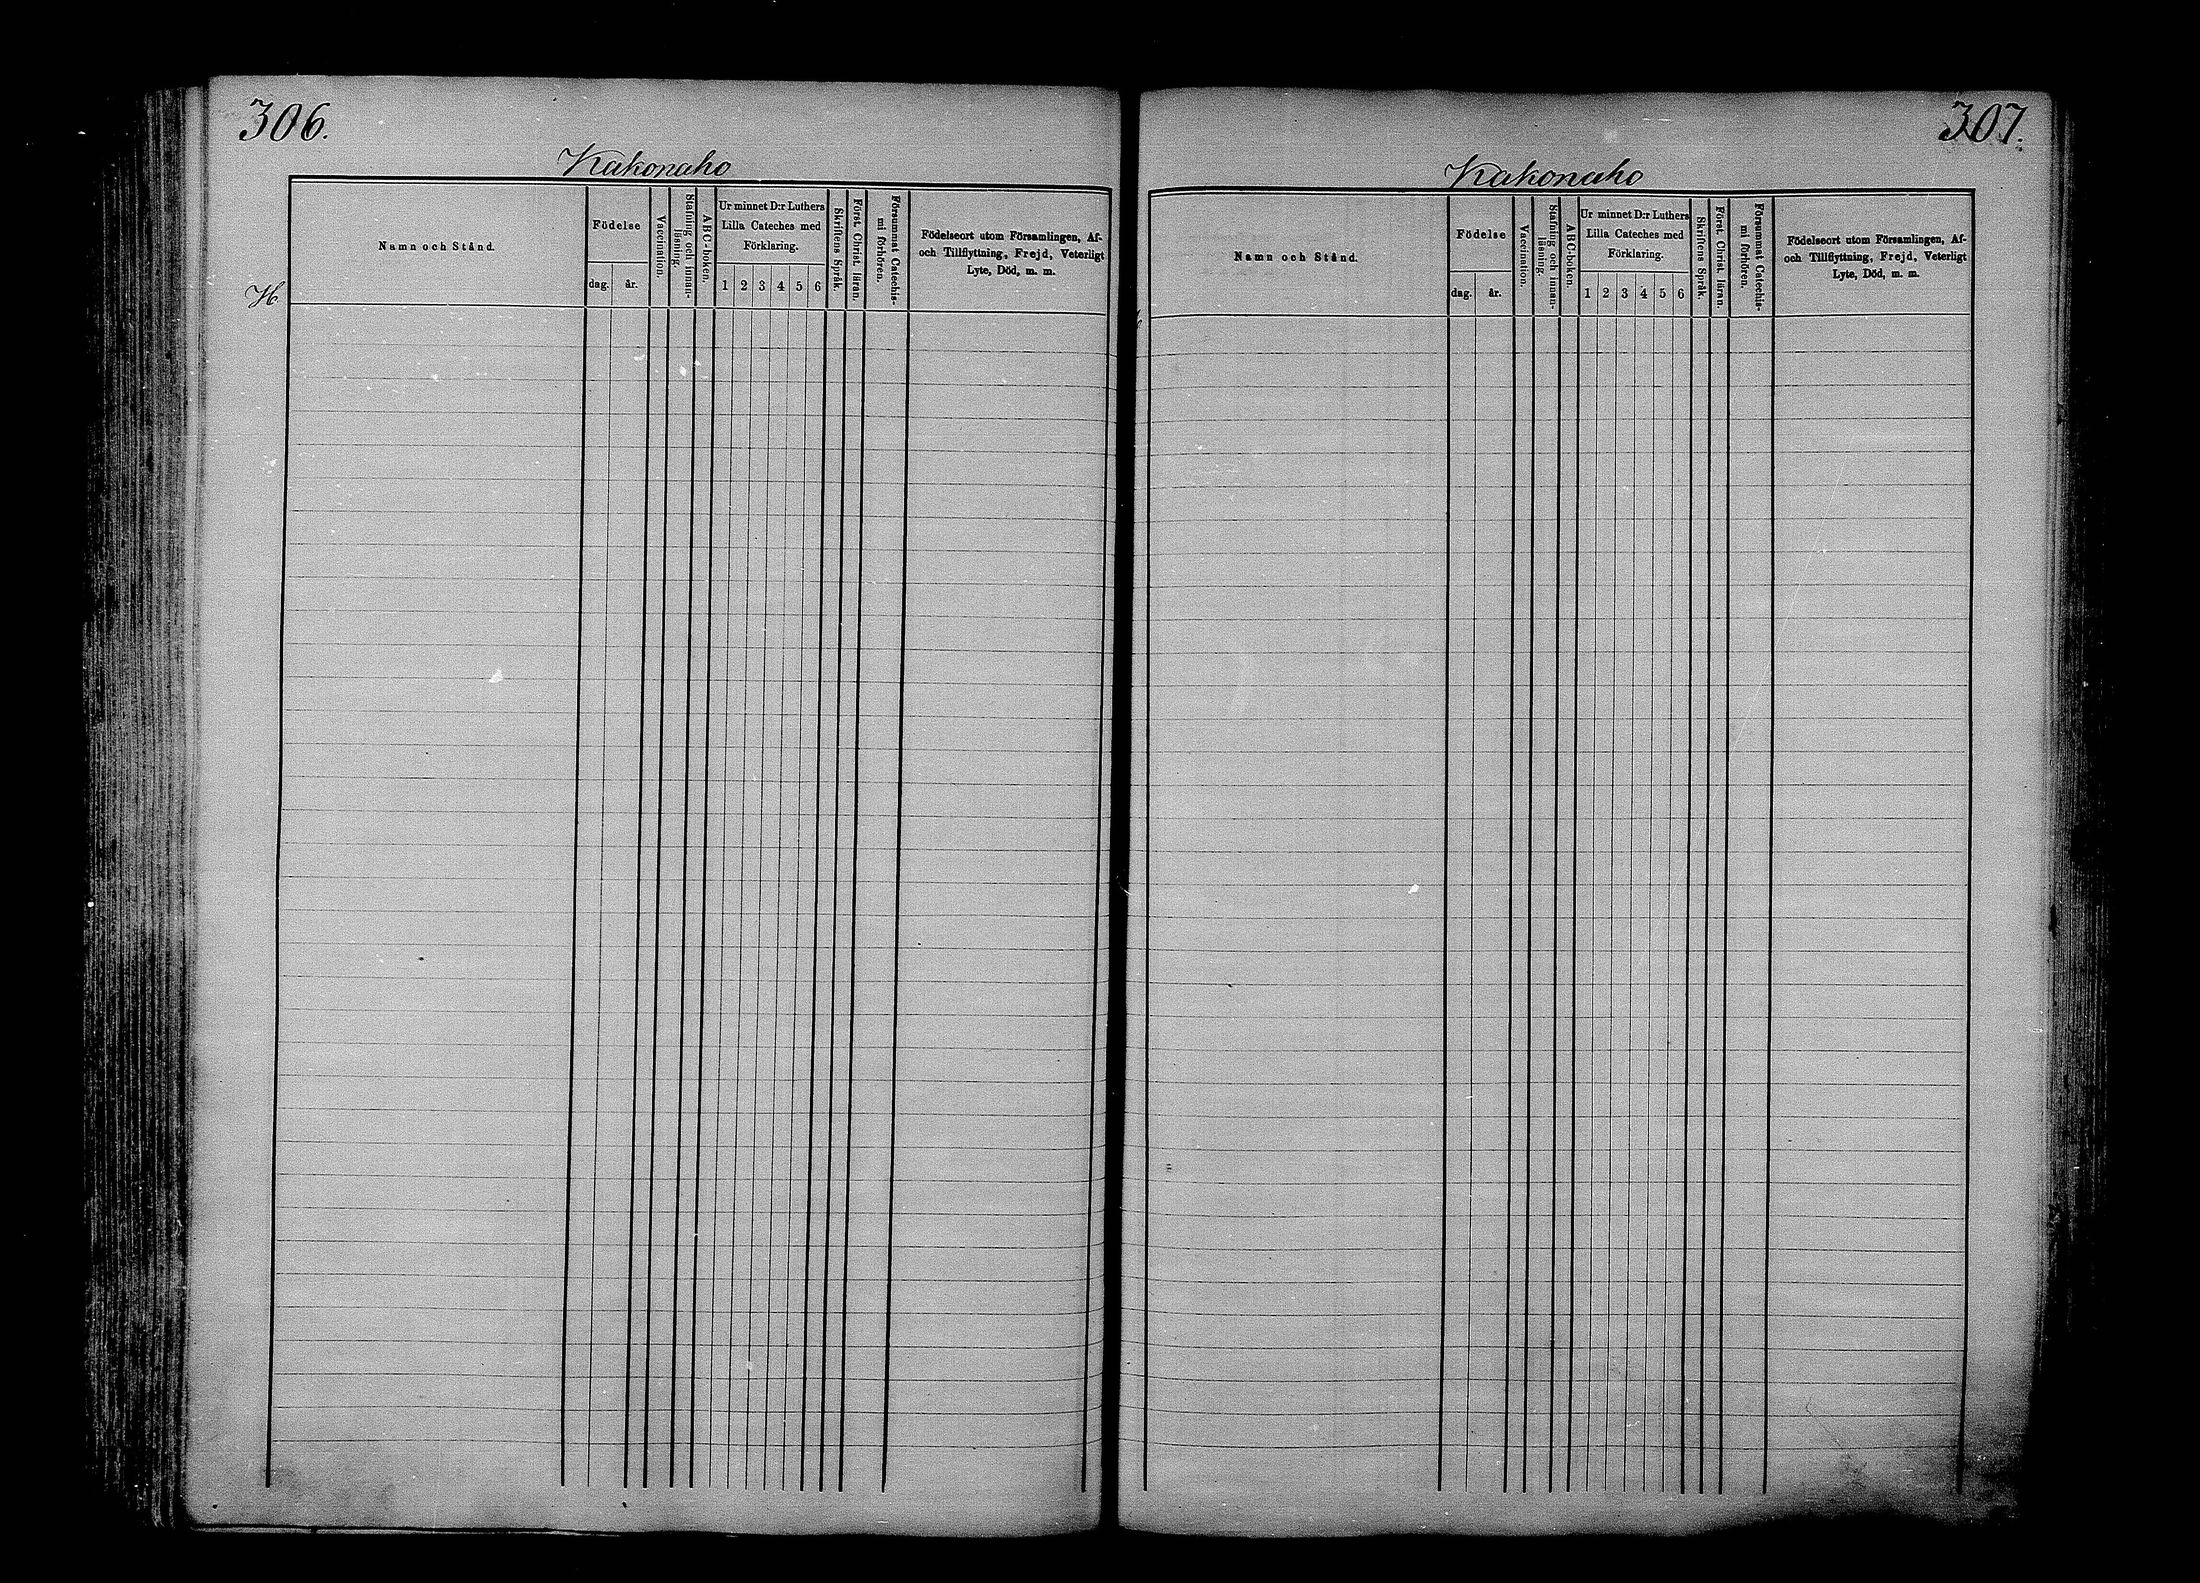 306.
Kakonaho
Namn och Stånd.
Födelse
dag.
år.
Vaccination.
Stafning och innan-
läsning.
ABC-boken.
Ur minnet D:r Luthers
Lilla Cateches med
Förklaring.
1 2 3 4 5 6
Skriftens Språk.
Först. Christ. läran.
Försummat Catechis-
mi förhören.
Födelseort utom Församlingen, Af-
och Tillflyttning, Frejd, Veterligt
Lyte, Död, m. m.
H
307.
Kakonaho
Namn och Stånd.
Födelse
dag.
år.
Vaccination.
Stafning och innan-
läsning.
ABC-boken.
Ur minnet D:r Luthers
Lilla Cateches med
Förklaring.
1 2 3 4 5 6
Skriftens Språk.
Först. Christ. läran.
Försummat Catechis-
mi förhören.
Födelseort utom Församlingen, Af-
och Tillflyttning, Frejd, Veterligt
Lyte, Död, m. m.